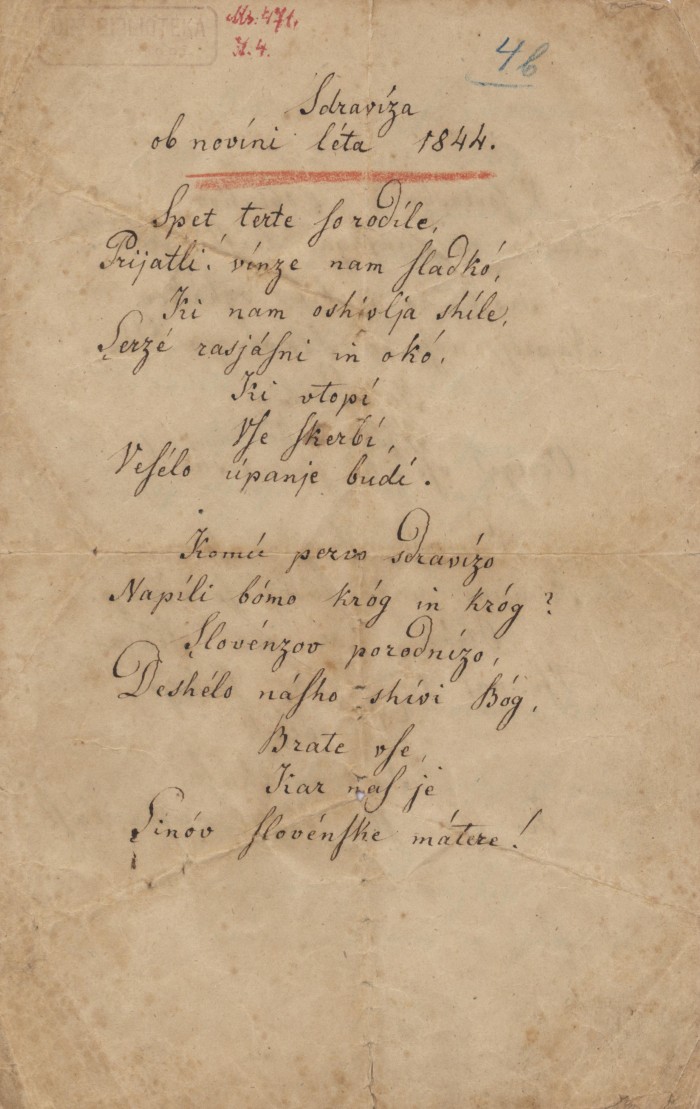 BIBLIOTEKA
Ms. 471.
I. 4.
4b
Sdravíza
ob novíni léta 1844.
Spet terte so rodíle,
Prijatli! vínze nam ſladkó,
Ki nam oshívlja shíle,
Serzé rasjáſni in okó,
Ki vtopí
Vſe ſkerbí,
Veſélo úpanje budí.
Komú pervo sdravízo
Napíli bómo króg in króg?
Slovénzov porodnízo,
Deshélo náſho shívi Bóg,
Brate vſe,
Kar naſ je
Sinóv ſlovénſke mátere!